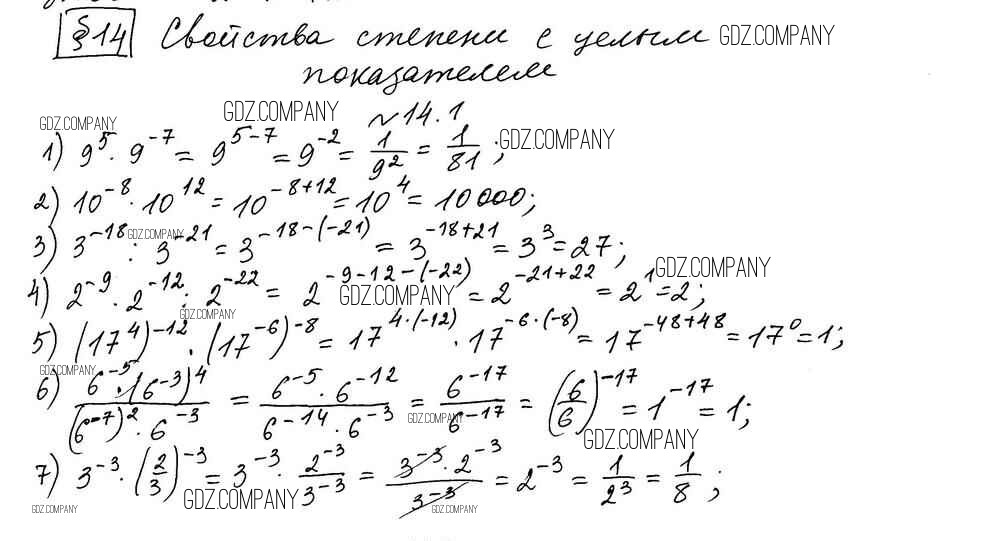 §14 Свойства степени с целым GDZ.COMPANY
показателем
GDZ.COMPANY GDZ.COMPANY №14.1
1) 9^5 · 9^-7 = 9^5-7 = 9^-2 = 1/9^2 = 1/81; GDZ.COMPANY
2) 10^-8 · 10^12 = 10^-8+12 = 10^4 = 10000;
3) 3^-18 GDZ.COMPANY : 3^-21 = 3^-18-(-21) = 3^-18+21 = 3^3 = 27;
4) 2^-9 · 2^-12 : 2^-22 = 2^-9-12-(-22) = 2^-21+22 = 2^1 = 2; GDZ.COMPANY
GDZ.COMPANY GDZ.COMPANY
5) (17^4)^-12 · (17^-6)^-8 = 17^4·(-12) · 17^-6·(-8) = 17^-48+48 = 17^0 = 1;
GDZ.COMPANY
6) 6^-5 · (6^-3)^4 / (6^-7)^2 · 6^-3 = 6^-5 · 6^-12 / 6^-14 · 6^-3 = 6^-17 / 6^-17 = (6/6)^-17 = 1^-17 = 1;
GDZ.COMPANY GDZ.COMPANY
7) 3^-3 · (2/3)^-3 = 3^-3 · 2^-3 / 3^-3 = 3^-3 · 2^-3 / 3^-3 = 2^-3 = 1/2^3 = 1/8;
GDZ.COMPANY GDZ.COMPANY GDZ.COMPANY